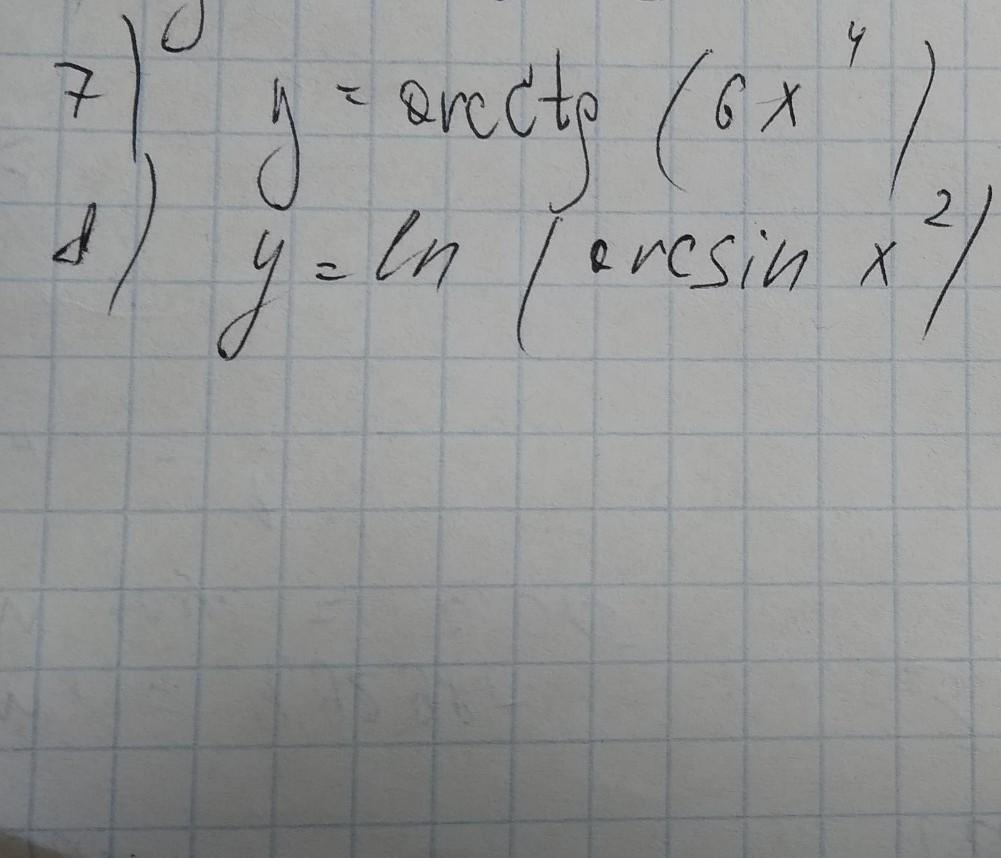 7) y = arcctg (6x⁴)
8) y = ln (arcsin x²)